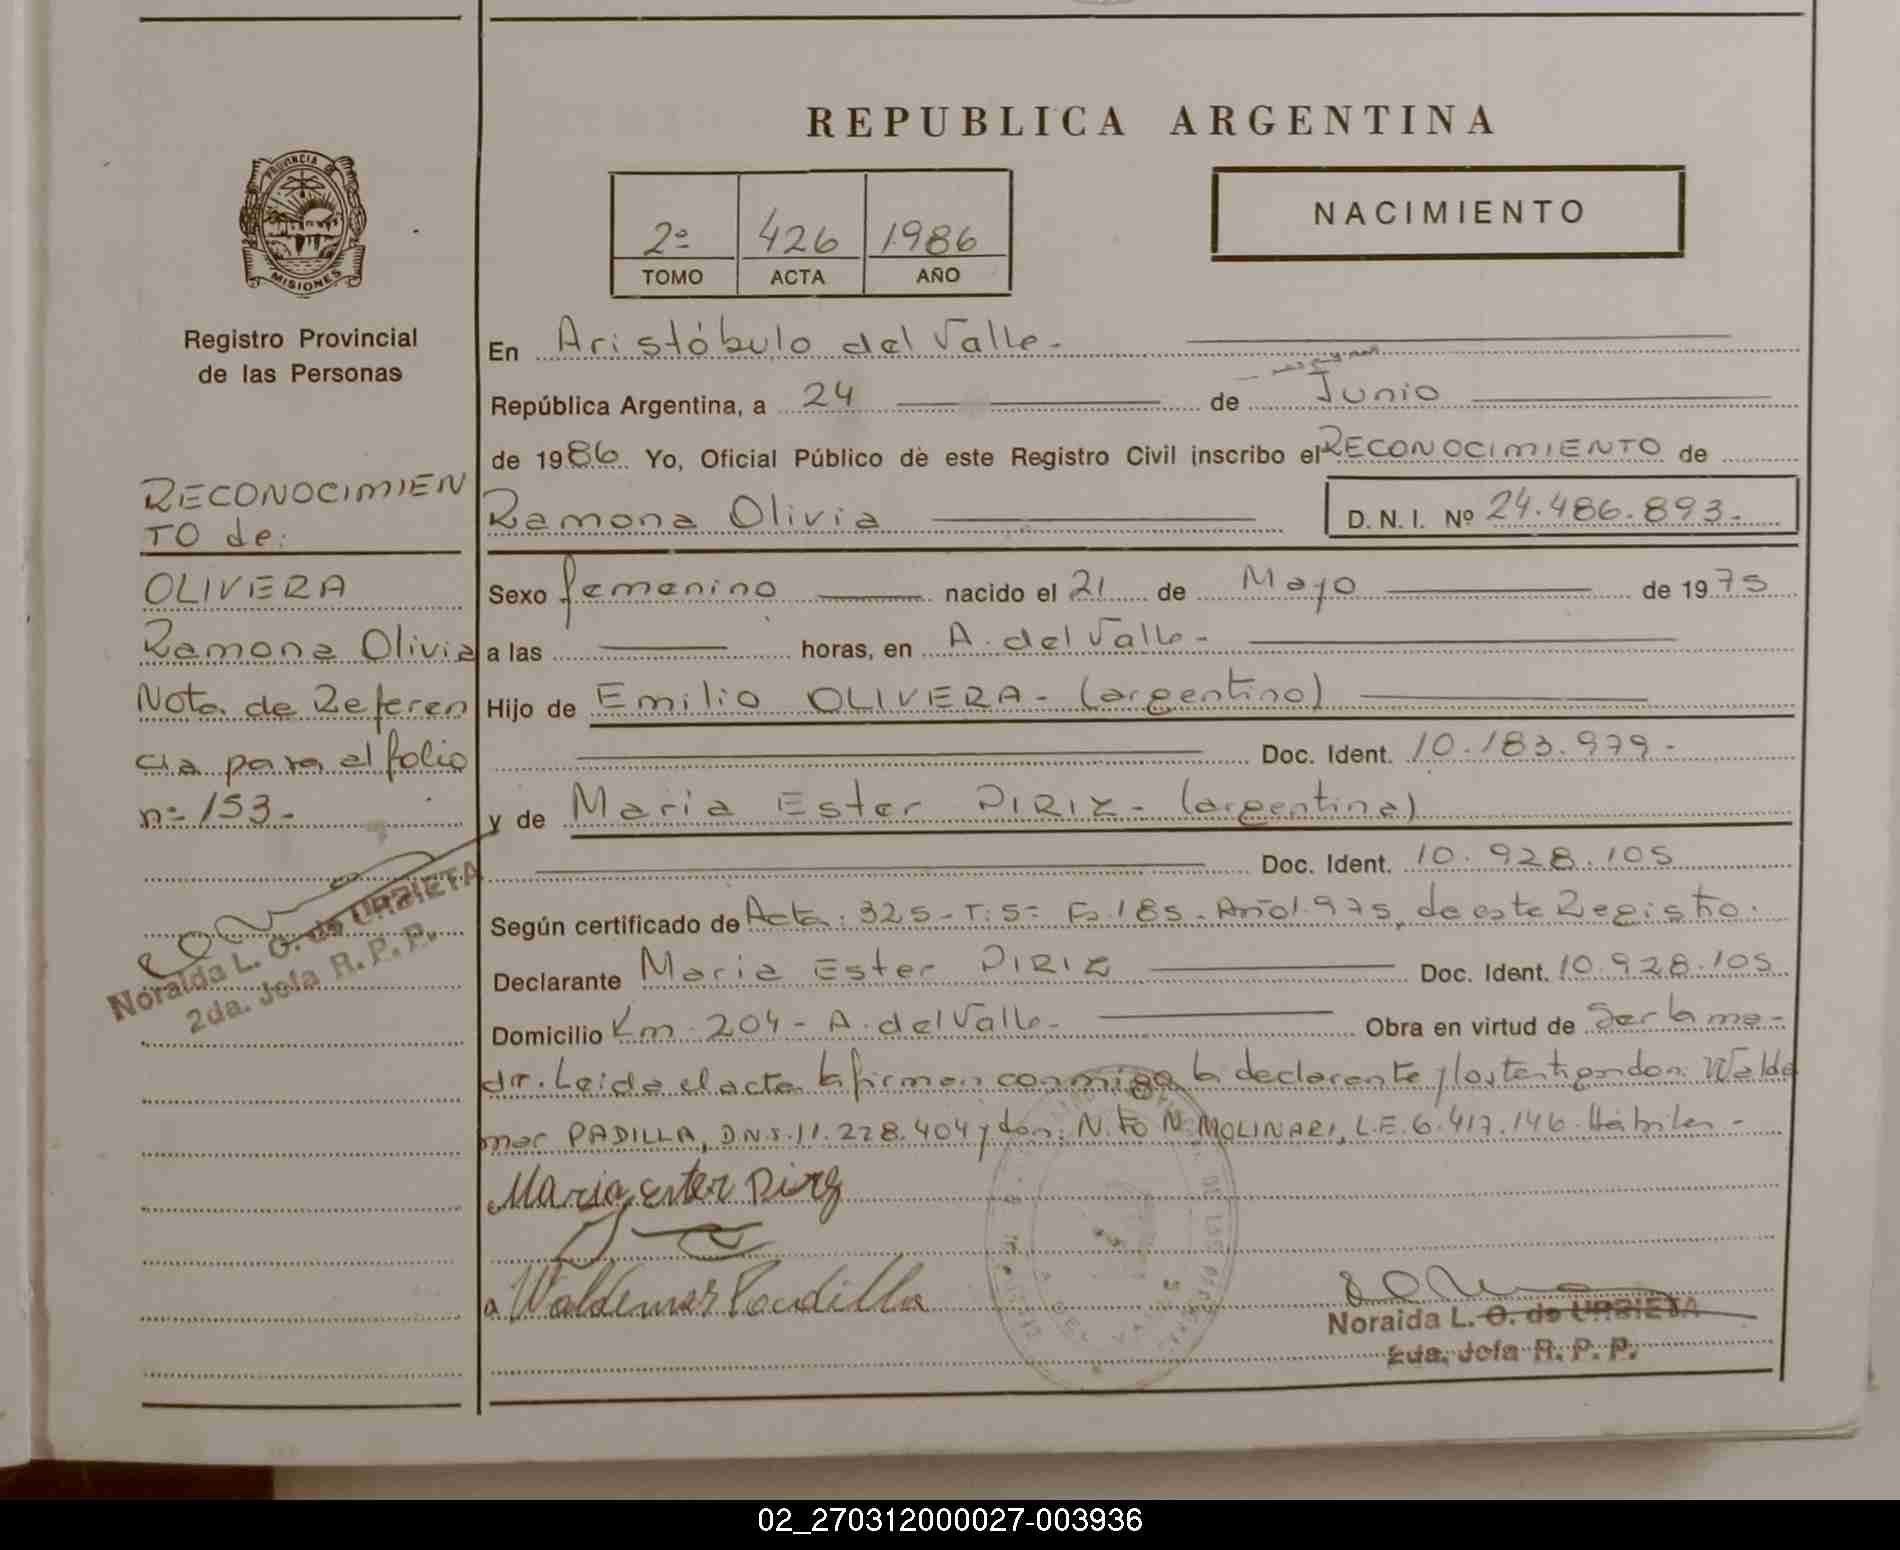 REPUBLICA ARGENTINA
PROVINCIA
MISIONES
Registro Provincial
de las Personas
2º 426 1986
TOMO ACTA AÑO
NACIMIENTO
En Aristóbulo del Valle.-
República Argentina, a 24 de Junio
de 1986 Yo, Oficial Público de este Registro Civil inscribo el RECONOCIMIENTO de
Ramona Olivia D. N. I. Nº 24.486.893.-
Sexo femenino nacido el 21 de Mayo de 1975
a las horas, en A. del Valle-
Hijo de Emilio OLIVERA- (argentino)
Doc. Ident. 10.183.979.-
y de Maria Ester PIRIZ- (argentina)
Doc. Ident. 10.928.105
Según certificado de Acta: 325-T: 5= Fo. 185. Año 1.975, de este Registro.
Declarante Maria Ester PIRIZ Doc. Ident. 10.928.105
Domicilio Km. 204- A. del Valle- Obra en virtud de ser la ma-
dre. Leida el acta la firman conmigo la declarante y los testigos don: Walde
mar PADILLA, D.N.I. 11.228.404 y don: N. MOLINARI, L.E. 6.417.146. Hábiles-
Maria Ester Piriz
Waldemar Padilla
Noraida L. O. de URBIETA
2da. Jefa R. P. P.
RECONOCIMIEN
TO de:
OLIVERA
Ramona Olivia
Nota de Referen
cia para el folio
nº 153-
Noraida L. O. de URBIETA
2da. Jefa R. P. P.
02_270312000027-003936